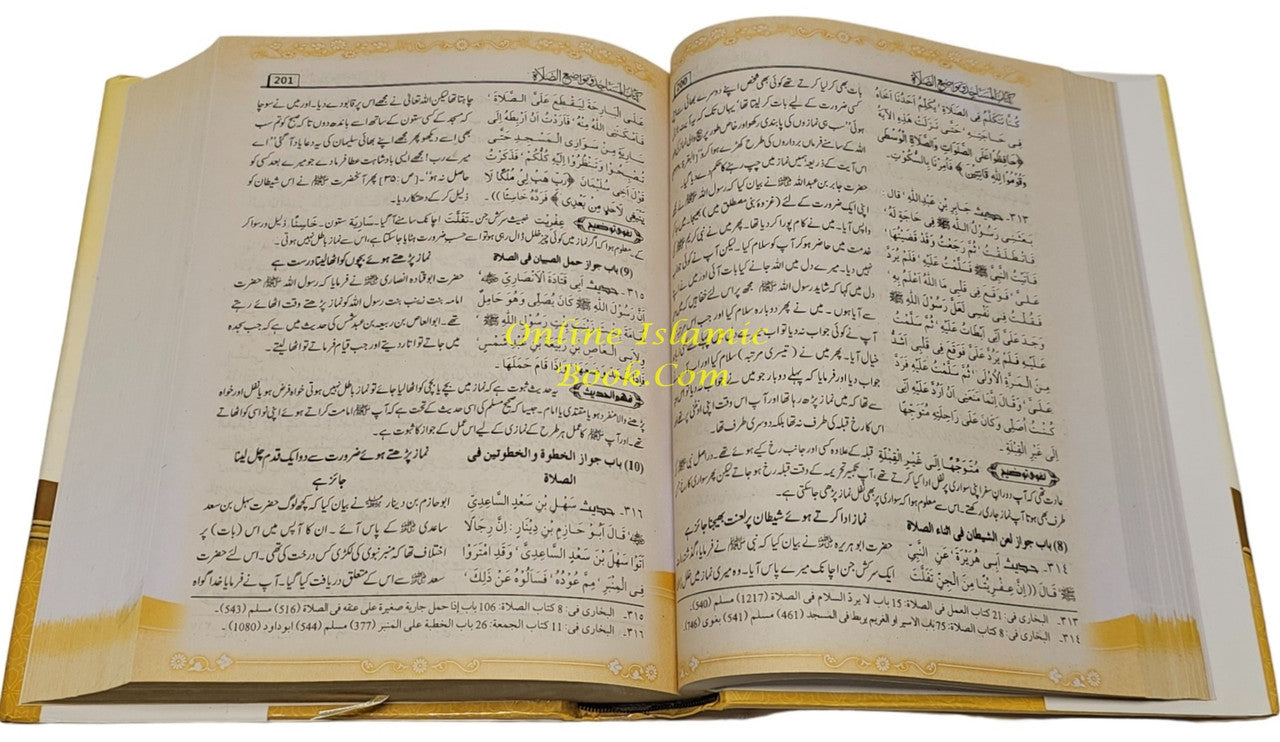 كتاب المساجد ومواضع الصلاة
كُنَّا نَتَكَلَّمُ فِى الصَّلَاةِ ' يُكَلِّمُ أَحَدُنَا أَخَاهُ
فِى حَاجَتِهِ ' حَتَّى نَزَلَتْ هَذِهِ الْآيَةُ
﴿حَافِظُوا عَلَى الصَّلَوَاتِ وَالصَّلَاةِ الْوُسْطَى
وَقُومُوا لِلَّهِ قَانِتِينَ﴾ فَأُمِرْنَا بِالسُّكُوتِ ـ
٣١٣ـ حديث جَابِرِ بْنِ عَبْدِاللَّهِ ' قَالَ :
بَعَثَنِى رَسُولُ اللَّهِ ﷺ فِى حَاجَةٍ لَهُ '
فَانْطَلَقْتُ ' ثُمَّ رَجَعْتُ وَقَدْ قَضَيْتُهَا '
فَأَتَيْتُ النَّبِىَّ ﷺ فَسَلَّمْتُ عَلَيْهِ ' فَلَمْ يَرُدَّ
عَلَىَّ ' فَوَقَعَ فِى قَلْبِى مَا اللَّهُ أَعْلَمُ بِهِ '
فَقُلْتُ فِى نَفْسِى لَعَلَّ رَسُولَ اللَّهِ ﷺ
وَجَدَ عَلَىَّ أَنِّى أَبْطَأْتُ عَلَيْهِ ' ثُمَّ سَلَّمْتُ
عَلَيْهِ فَلَمْ يَرُدَّ عَلَىَّ فَوَقَعَ فِى قَلْبِى أَشَدُّ
مِنَ الْمَرَّةِ الْأُولَى ' ثُمَّ سَلَّمْتُ عَلَيْهِ فَرَدَّ
عَلَىَّ ' وَقَالَ إِنَّمَا مَنَعَنِى أَنْ أَرُدَّ عَلَيْكَ أَنِّى
كُنْتُ أُصَلِّى وَكَانَ عَلَى رَاحِلَتِهِ مُتَوَجِّهًا
إِلَى غَيْرِ الْقِبْلَةِ ـ
بات بھی کرلیا کرتے تھے کوئی بھی شخص اپنے دوسرے بھائی
اس آیت کے ذریعہ ہمیں نماز میں چپ رہنے کا حکم دے دیا گیا۔
حضرت جابر بن عبداللہ ؓ نے بیان کیا کہ رسول اللہ ﷺ نے
اپنی ایک ضرورت کے لئے (غزوۂ بنی مصطلق میں) بھیجا۔ میں
واپس آیا۔ میں نے کام پورا کردیا تھا۔ پھر میں نے نبی کریم
خدمت میں حاضر ہو کر آپ کو سلام کیا۔ لیکن آپ نے
نہیں دیا۔ میرے دل میں اللہ جانے کیا بات آئی اور میں نے
دل میں کہا کہ شاید رسول اللہ ﷺ مجھ پر اس لئے خفا ہیں
سے آیا ہوں۔ میں نے پھر دوبارہ سلام کیا اور جب
آپ نے کوئی جواب نہ دیا تو
خیال آیا۔ پھر میں نے (تیسری مرتبہ) سلام کیا اور
جواب دیا اور فرمایا کہ پہلے دوبار جو میں نے
سے تھا کہ میں نماز پڑھ رہا تھا اور آپ اس وقت اپنی اونٹنی پر تھے
اس کا رخ قبلہ کی طرف نہ تھا بلکہ دوسری طرف تھا۔
لغوی توضیح مُتَوَجِّهًا إِلَى غَيْرِ الْقِبْلَةِ قبلہ کے علاوہ کسی اور جانب رخ کیے ہوئے تھے۔ دراصل نبی ﷺ
عادت تھی کہ آپ دوران سفر اپنی سواری پر نفل ادا کیا کرتے تھے، آپ تکبیر تحریمہ کے وقت قبلہ رخ ہو جاتے لیکن پھر سواری کا رخ
طرف بھی ہوتا آپ نماز جاری رکھتے۔ اس سے معلوم ہوا کہ سواری پر بھی نفل نماز پڑھی جاسکتی ہے۔
(8) باب جواز لعن الشيطان فى اثناء الصلاة
نماز ادا کرتے ہوئے شیطان پر لعنت بھیجنا جائز ہے
٣١٤ـ حديث أَبِى هُرَيْرَةَ ' عَنِ النَّبِىِّ
ﷺ ' قَالَ ((إِنَّ عِفْرِيتًا مِنَ الْجِنِّ تَفَلَّتَ
حضرت ابو ہریرہ ؓ نے بیان کیا کہ نبی ﷺ نے فرمایا، گذشتہ
ایک سرکش جن اچانک میرے پاس آیا۔ وہ میری نماز میں خلل
٣١٣ـ البخارى فى: 21 كتاب العمل فى الصلاة: 15 باب لا يرد السلام فى الصلاة (1217) مسلم (540)ـ
٣١٤ـ البخارى فى: 8 كتاب الصلاة: 75 باب الاسير او الغريم يربط فى المسجد (461) مسلم (541) بغوى (746)ـ
كتاب المساجد ومواضع الصلاة
201
عَلَىَّ الْبَارِحَةَ لِيَقْطَعَ عَلَىَّ الصَّلَاةَ '
فَأَمْكَنَنِى اللَّهُ مِنْهُ ' فَأَرَدْتُ أَنْ أَرْبِطَهُ إِلَى
سَارِيَةٍ مِنْ سَوَارِى الْمَسْجِدِ حَتَّى
تُصْبِحُوا وَتَنْظُرُوا إِلَيْهِ كُلُّكُمْ ' فَذَكَرْتُ
قَوْلَ أَخِى سُلَيْمَانَ ﴿رَبِّ هَبْ لِى مُلْكًا لَا
يَنْبَغِى لِأَحَدٍ مِنْ بَعْدِى﴾ فَرَدَّهُ خَاسِئًا))ـ
چاہتا تھا لیکن اللہ تعالیٰ نے مجھے اس پر قابو دے دیا۔ اور میں نے سوچا
کہ مسجد کے کسی ستون کے ساتھ اسے باندھ دوں تا کہ صبح کو تم سب
بھی اسے دیکھو پھر مجھے اپنے بھائی سلیمان کی یہ دعا یاد آگئی ''اے
میرے رب! مجھے ایسی بادشاہت عطا فرما دے جو میرے بعد کسی کو
حاصل نہ ہو''۔ [ص:۳۵] پھر آنحضرت ﷺ نے اس شیطان کو
ذلیل کر کے دھتکار دیا۔
لغوی توضیح عِفْرِيْت خبیث سرکش جن۔ تَفَلَّتَ اچانک سامنے آگیا۔ سَارِيَة ستون۔ خَاسِئًا ذلیل و رسوا کر
کے۔ معلوم ہوا کہ اگر نماز میں کوئی چیز خلل ڈال رہی ہو تو اسے حسب ضرورت ہٹایا جاسکتا ہے، اس سے نماز باطل نہیں ہوتی۔
(9) باب جواز حمل الصبيان فى الصلاة
نماز پڑھتے ہوئے بچوں کو اٹھا لینا درست ہے
٣١٥ـ حديث أَبِى قَتَادَةَ الْأَنْصَارِىِّ '
أَنَّ رَسُولَ اللَّهِ ﷺ كَانَ يُصَلِّى وَهُوَ حَامِلٌ
وَلِأَبِى الْعَاصِ بْنِ رَبِيعَةَ بْنِ عَبْدِ شَمْسٍ
وَإِذَا قَامَ حَمَلَهَا ـ
حضرت ابو قتادہ انصاری ؓ نے فرمایا کہ رسول اللہ ﷺ حضرت
امامہ بنت زینب بنت رسول اللہ کو نماز پڑھتے وقت اٹھائے رہتے
تھے۔ ابوالعاص بن ربیعہ بن عبد شمس کی حدیث میں ہے کہ جب سجدہ
میں جاتے تو اتار دیتے اور جب قیام فرماتے تو اٹھا لیتے۔
فهم الحديث یہ حدیث ثبوت ہے کہ نماز میں بچے یا بچی کو اٹھا لیا جائے تو نماز باطل نہیں ہوتی خواہ فرض ہو یا نفل اور خواہ
پڑھنے والا منفرد ہو یا مقتدی یا امام۔ جیسا کہ صحیح مسلم کی اسی حدیث کے تحت ہے کہ آپ ﷺ امامت کراتے ہوئے اپنی نواسی کو اٹھاتے
تھے۔ اور آپ ﷺ کا عمل ہر طرح کے نمازی کے لیے اس عمل کے جواز کا ثبوت ہے۔
(10) باب جواز الخطوة والخطوتين فى
الصلاة
نماز پڑھتے ہوئے ضرورت سے دو ایک قدم چل لینا
جائز ہے
٣١٦ـ حديث سَهْلِ بْنِ سَعْدٍ السَّاعِدِيِّ
ؓ ' قَالَ أَبُو حَازِمِ بْنِ دِينَارٍ : إِنَّ رِجَالًا
أَتَوْا سَهْلَ بْنَ سَعْدٍ السَّاعِدِيَّ ' وَقَدِ امْتَرَوْا
فِى الْمِنْبَرِ ' مِمَّ عُودُهُ؟ فَسَأَلُوهُ عَنْ ذَلِكَ '
ابو حازم بن دینار ؒ نے بیان کیا کہ کچھ لوگ حضرت سہل بن سعد
ساعدی ؓ کے پاس آئے۔ ان کا آپس میں اس (بات) پر
اختلاف تھا کہ منبر نبوی کی لکڑی کس درخت کی تھی۔ اس لئے حضرت
سعد ؓ سے اس کے متعلق دریافت کیا گیا۔ آپ نے فرمایا خدا گواہ
٣١٥ـ البخارى فى: 8 كتاب الصلاة: 106 باب إذا حمل جارية صغيرة على عنقه فى الصلاة (516) مسلم (543)ـ
٣١٦ـ البخارى فى: 11 كتاب الجمعة: 26 باب الخطبة على المنبر (377) مسلم (544) ابوداود (1080)ـ
Online Islamic
Book.Com